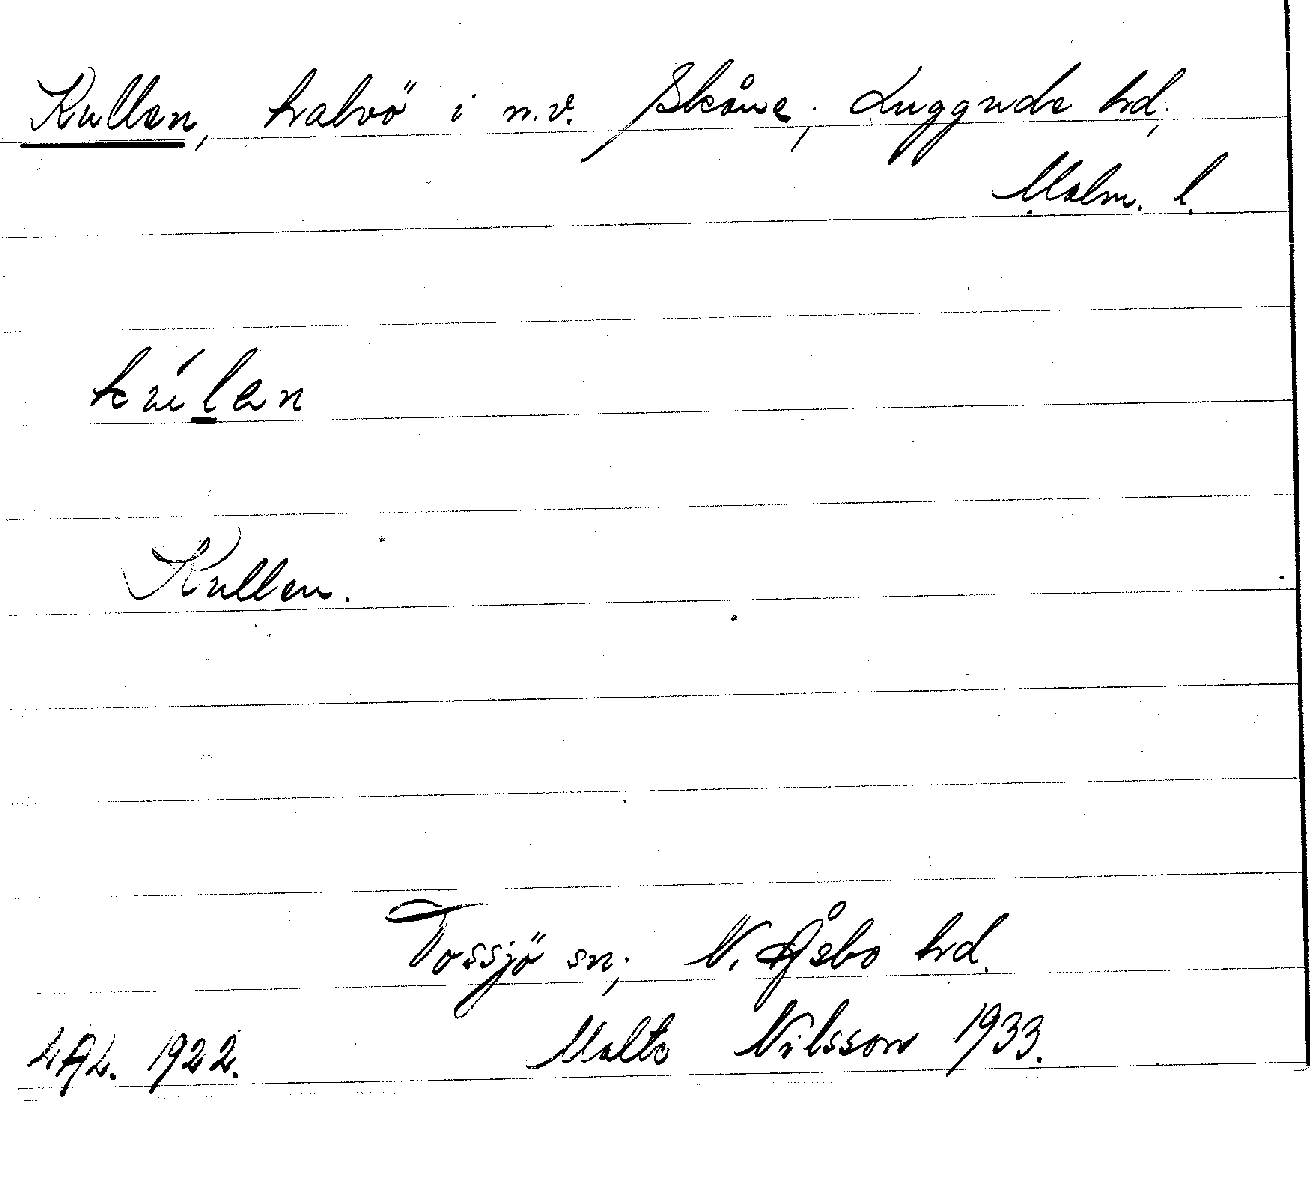 Kullen, halvö i n.v. Skåne; Luggude hd;
Malm. l.
kúlen
Kullen.
Tossjö sn; N. Åsbo hd.
LAL. 1922. Malte Nilsson 1933.